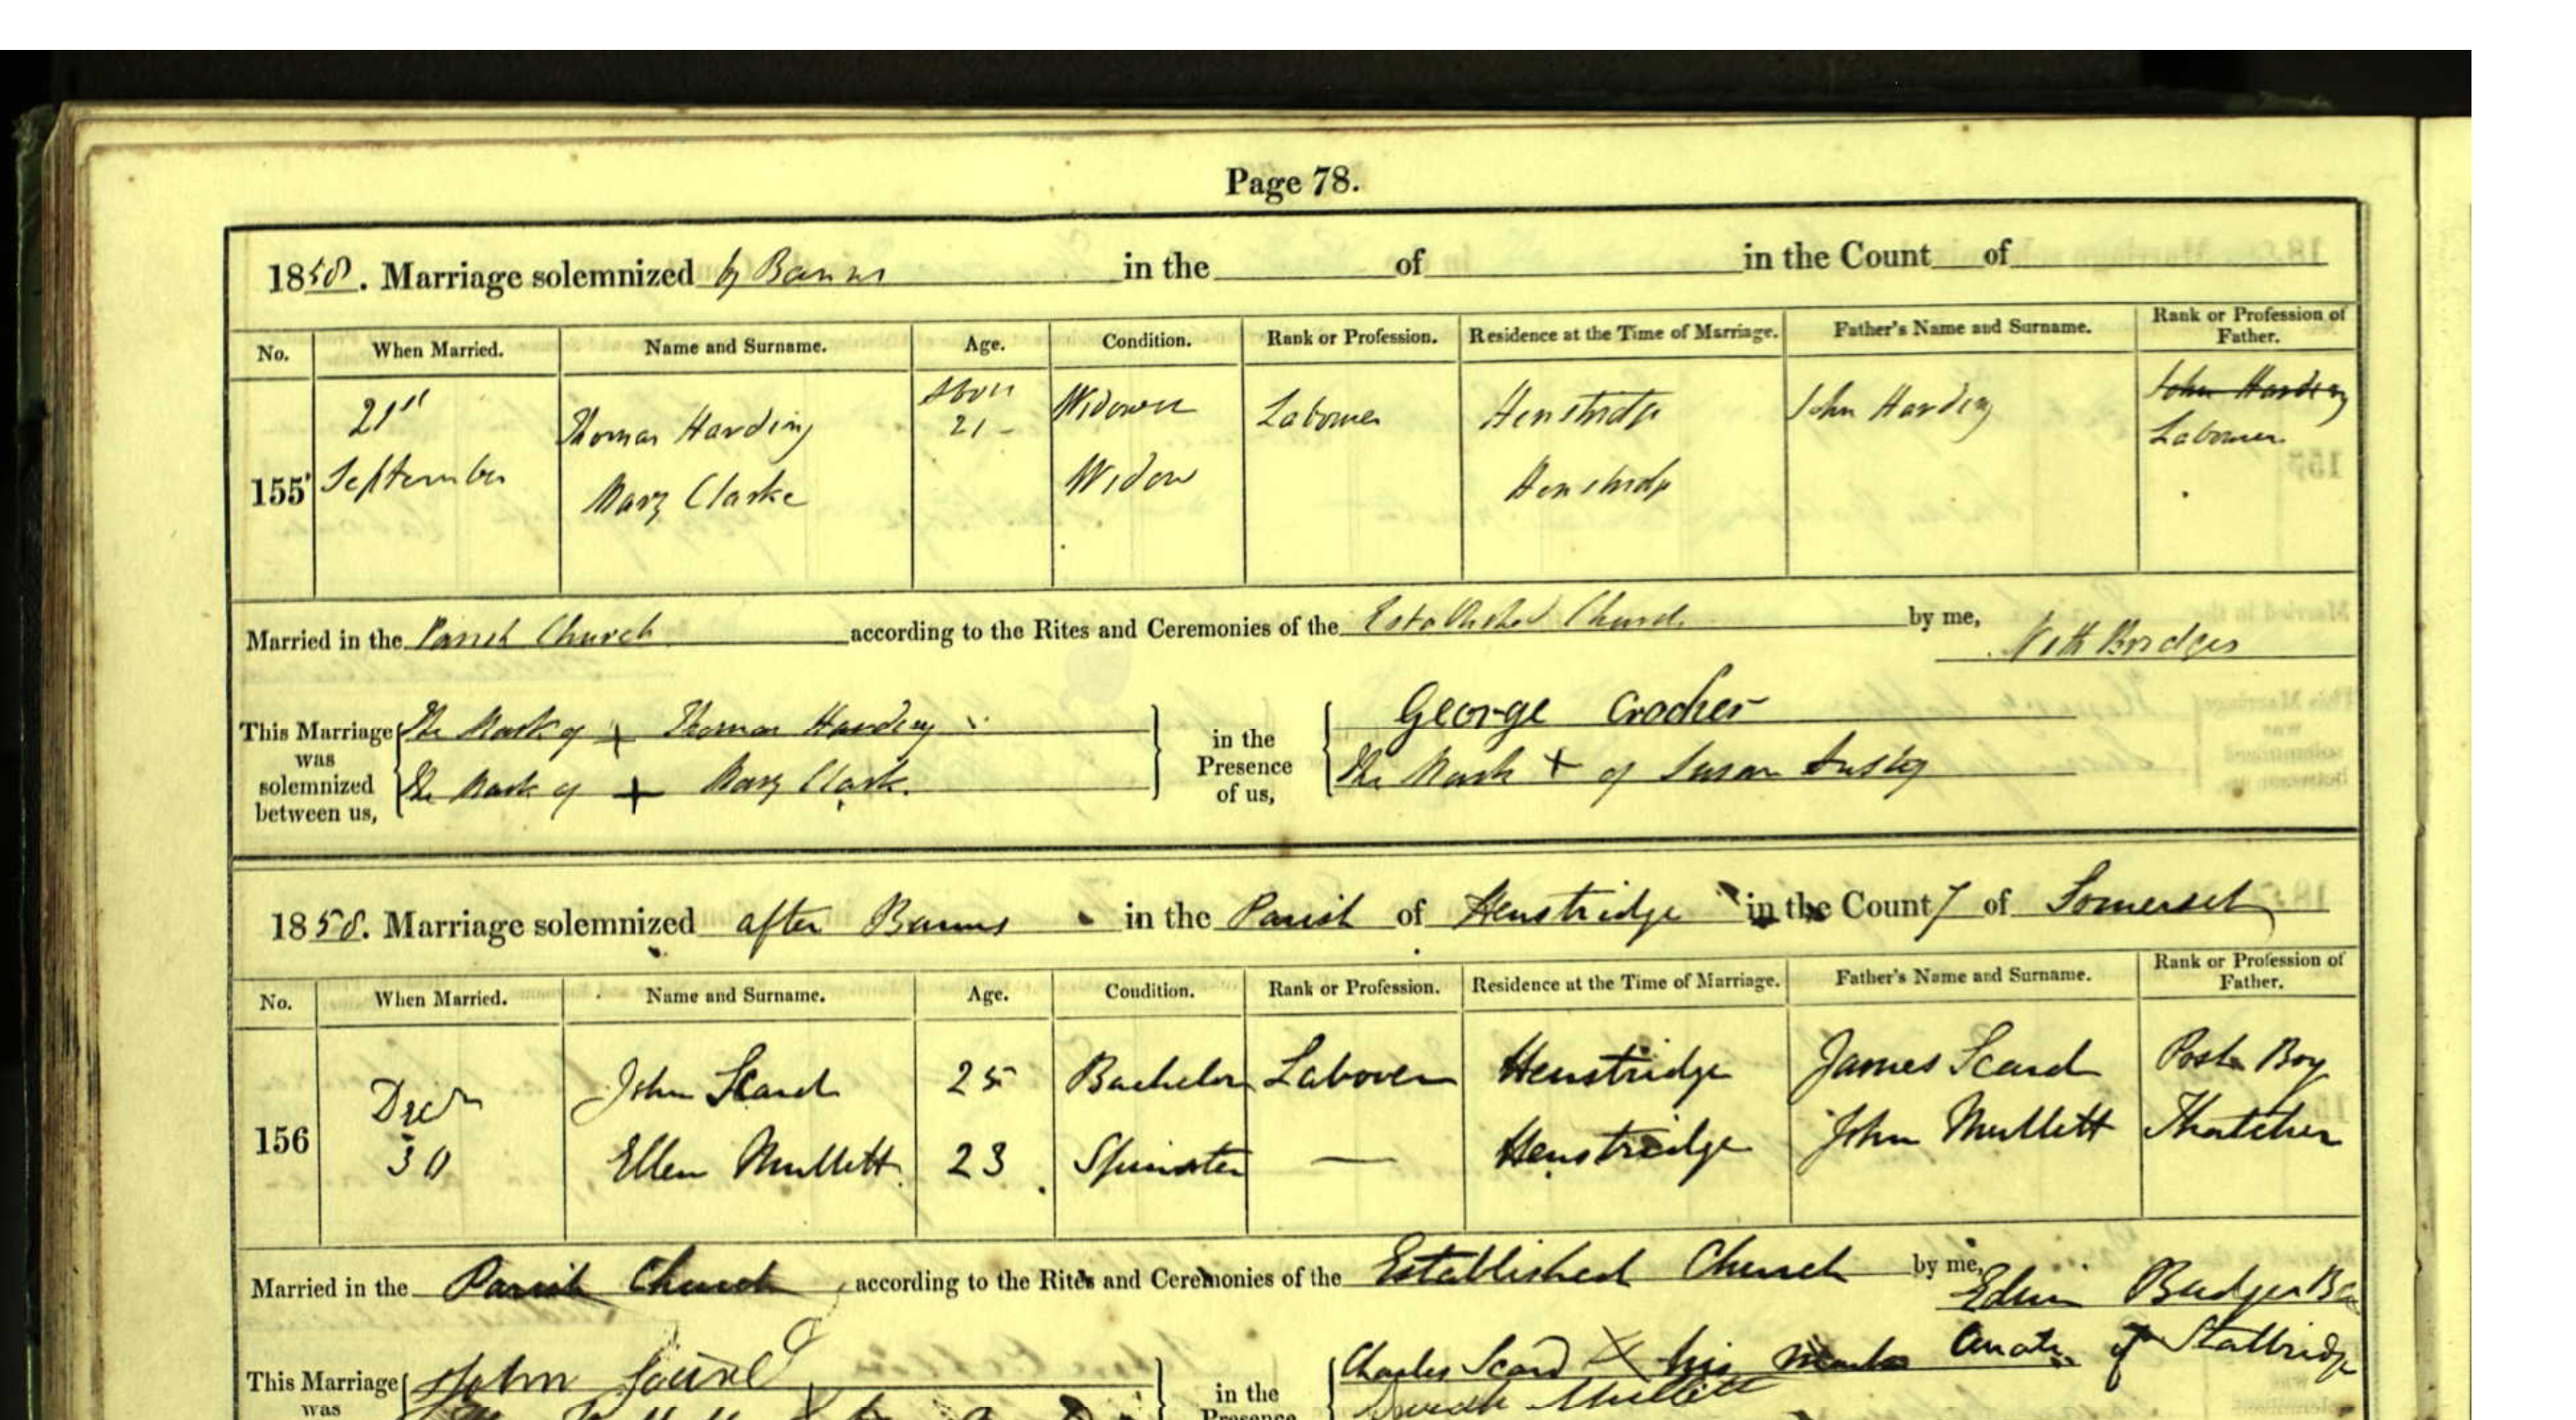 Page 78.
1858. Marriage solemnized by Banns in the of in the Count of
No. When Married. Name and Surname. Age. Condition. Rank or Profession. Residence at the Time of Marriage. Father's Name and Surname. Rank or Profession of Father.
155 21st September Thomas Harding above 21 - Widower Labourer Henstridge John Harding John Harding Labourer
Mary Clarke Widow Henstridge
Married in the Parish Church according to the Rites and Ceremonies of the Established Church by me, Bridges
This Marriage was solemnized between us, The Mark of + Thomas Harding
The Mark of + Mary Clark.
in the Presence of us, George Crocker
The Mark + of Susan
1858. Marriage solemnized after Banns in the Parish of Henstridge in the County of Somerset
No. When Married. Name and Surname. Age. Condition. Rank or Profession. Residence at the Time of Marriage. Father's Name and Surname. Rank or Profession of Father.
156 Decr 30 John Scard 25 Bachelor Labourer Henstridge James Scard Post Boy
Ellen Mullett 23 Spinster — Henstridge John Mullett Thatcher
Married in the Parish Church according to the Rites and Ceremonies of the Established Church by me,
Curate of Stalbridge
This Marriage was John Scard
in the Presence Charles Scard X his mark
Mullett